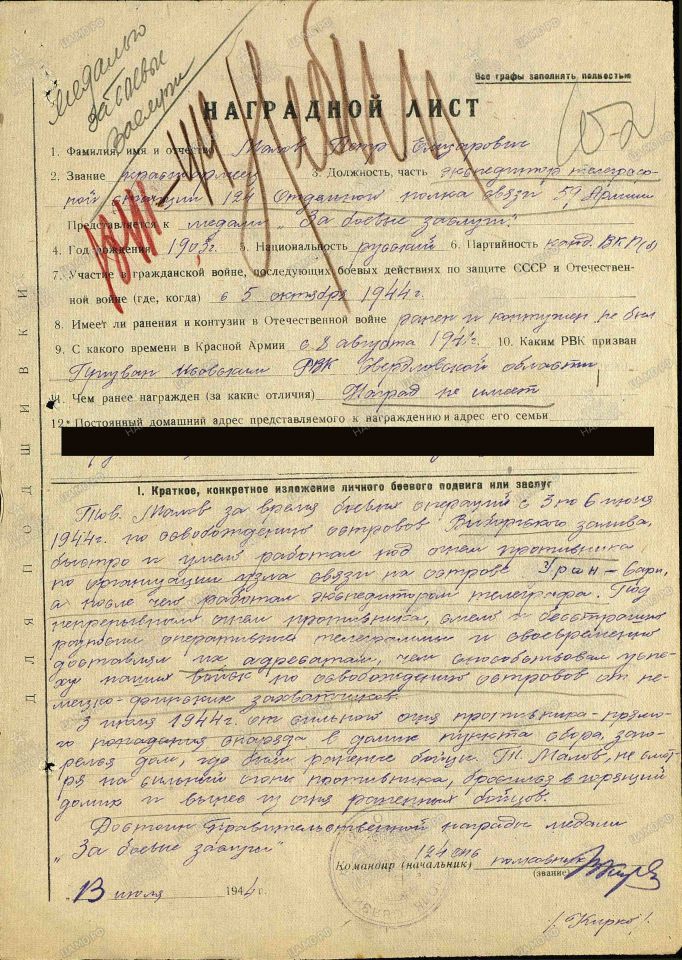 Медалью
за боевые
заслуги
Все графы заполнять полностью
НАГРАДНОЙ ЛИСТ
1. Фамилия, имя и отчество Малов Петр Елизарович
2. Звание красноармеец 3. Должность, часть экспедитор телеграф-
ной станции 124 Отдельного полка связи 59 Армии
Представляется к медали „За боевые заслуги".
4. Год рождения 1903г. 5. Национальность русский 6. Партийность канд. ВКП(б)
7. Участие в гражданской войне, последующих боевых действиях по защите СССР и Отечествен-
ной войне (где, когда) с 5 октября 1944г.
8. Имеет ли ранения и контузии в Отечественной войне ранен и контужен не был
9. С какого времени в Красной Армии с 8 августа 1941г. 10. Каким РВК призван
Призван РВК Свердловской области
11. Чем ранее награжден (за какие отличия) Наград не имеет
12. Постоянный домашний адрес представляемого к награждению и адрес его семьи
I. Краткое, конкретное изложение личного боевого подвига или заслуг
Тов. Малов за время боевых операций с 3 по 6 июля
1944г. по освобождению островов Выборгского залива,
быстро и умело работал под огнем противника
по организации узла связи на острове Уран-саари,
а после чего работал экспедитором телеграфа. Под
непрерывным огнем противника, смело и бесстрашно
разносил оперативные телеграммы и своевременно
доставлял их адресатам, чем способствовал успе-
ху наших войск по освобождению островов от не-
мецко-финских захватчиков.
3 июля 1944г. от сильного огня противника - прямо-
го попадания снаряда в домик пункта сбора, заго-
релся дом, где были раненые бойцы. Т. Малов, не смот-
ря на сильный огонь противника, бросился в горящий
домик и вынес из огня раненных бойцов.
Достоин Правительственной награды медали
„За боевые заслуги"
124 опс
Командир (начальник) полковник
(звание)
13 июля 1944г.
/Кирко/.
ДЛЯ ПОДШИВКИ